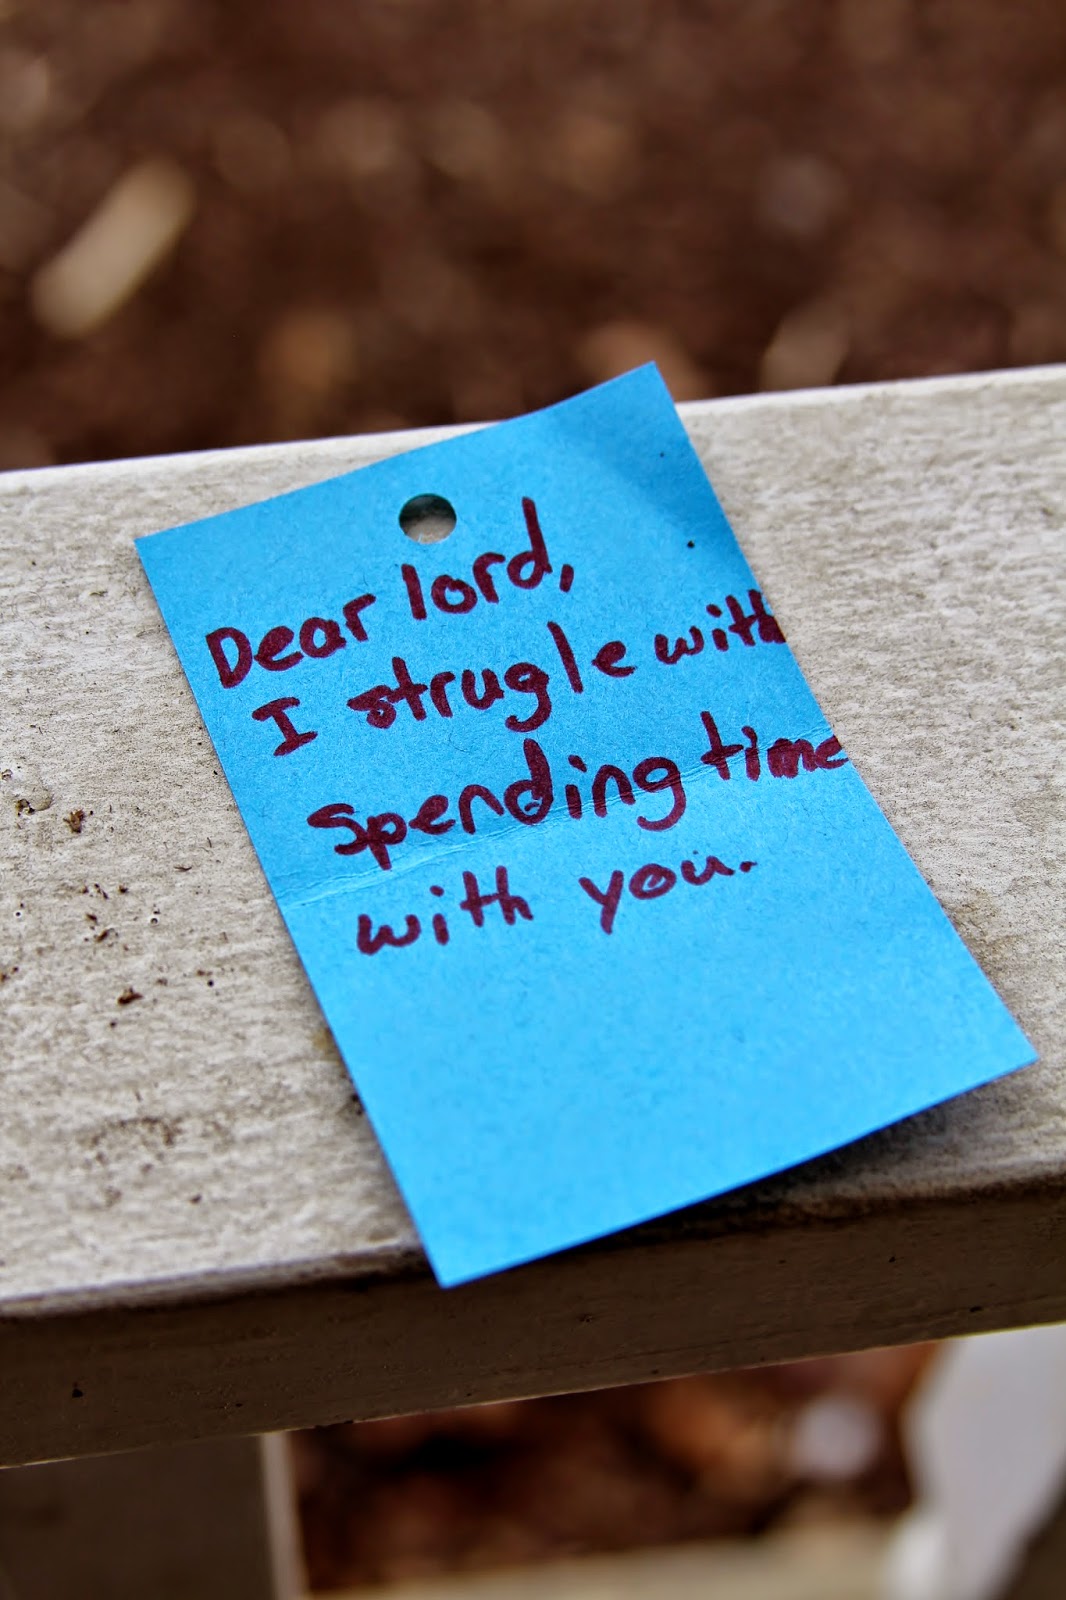 Dear lord,
I strugle with
spending time
with you.